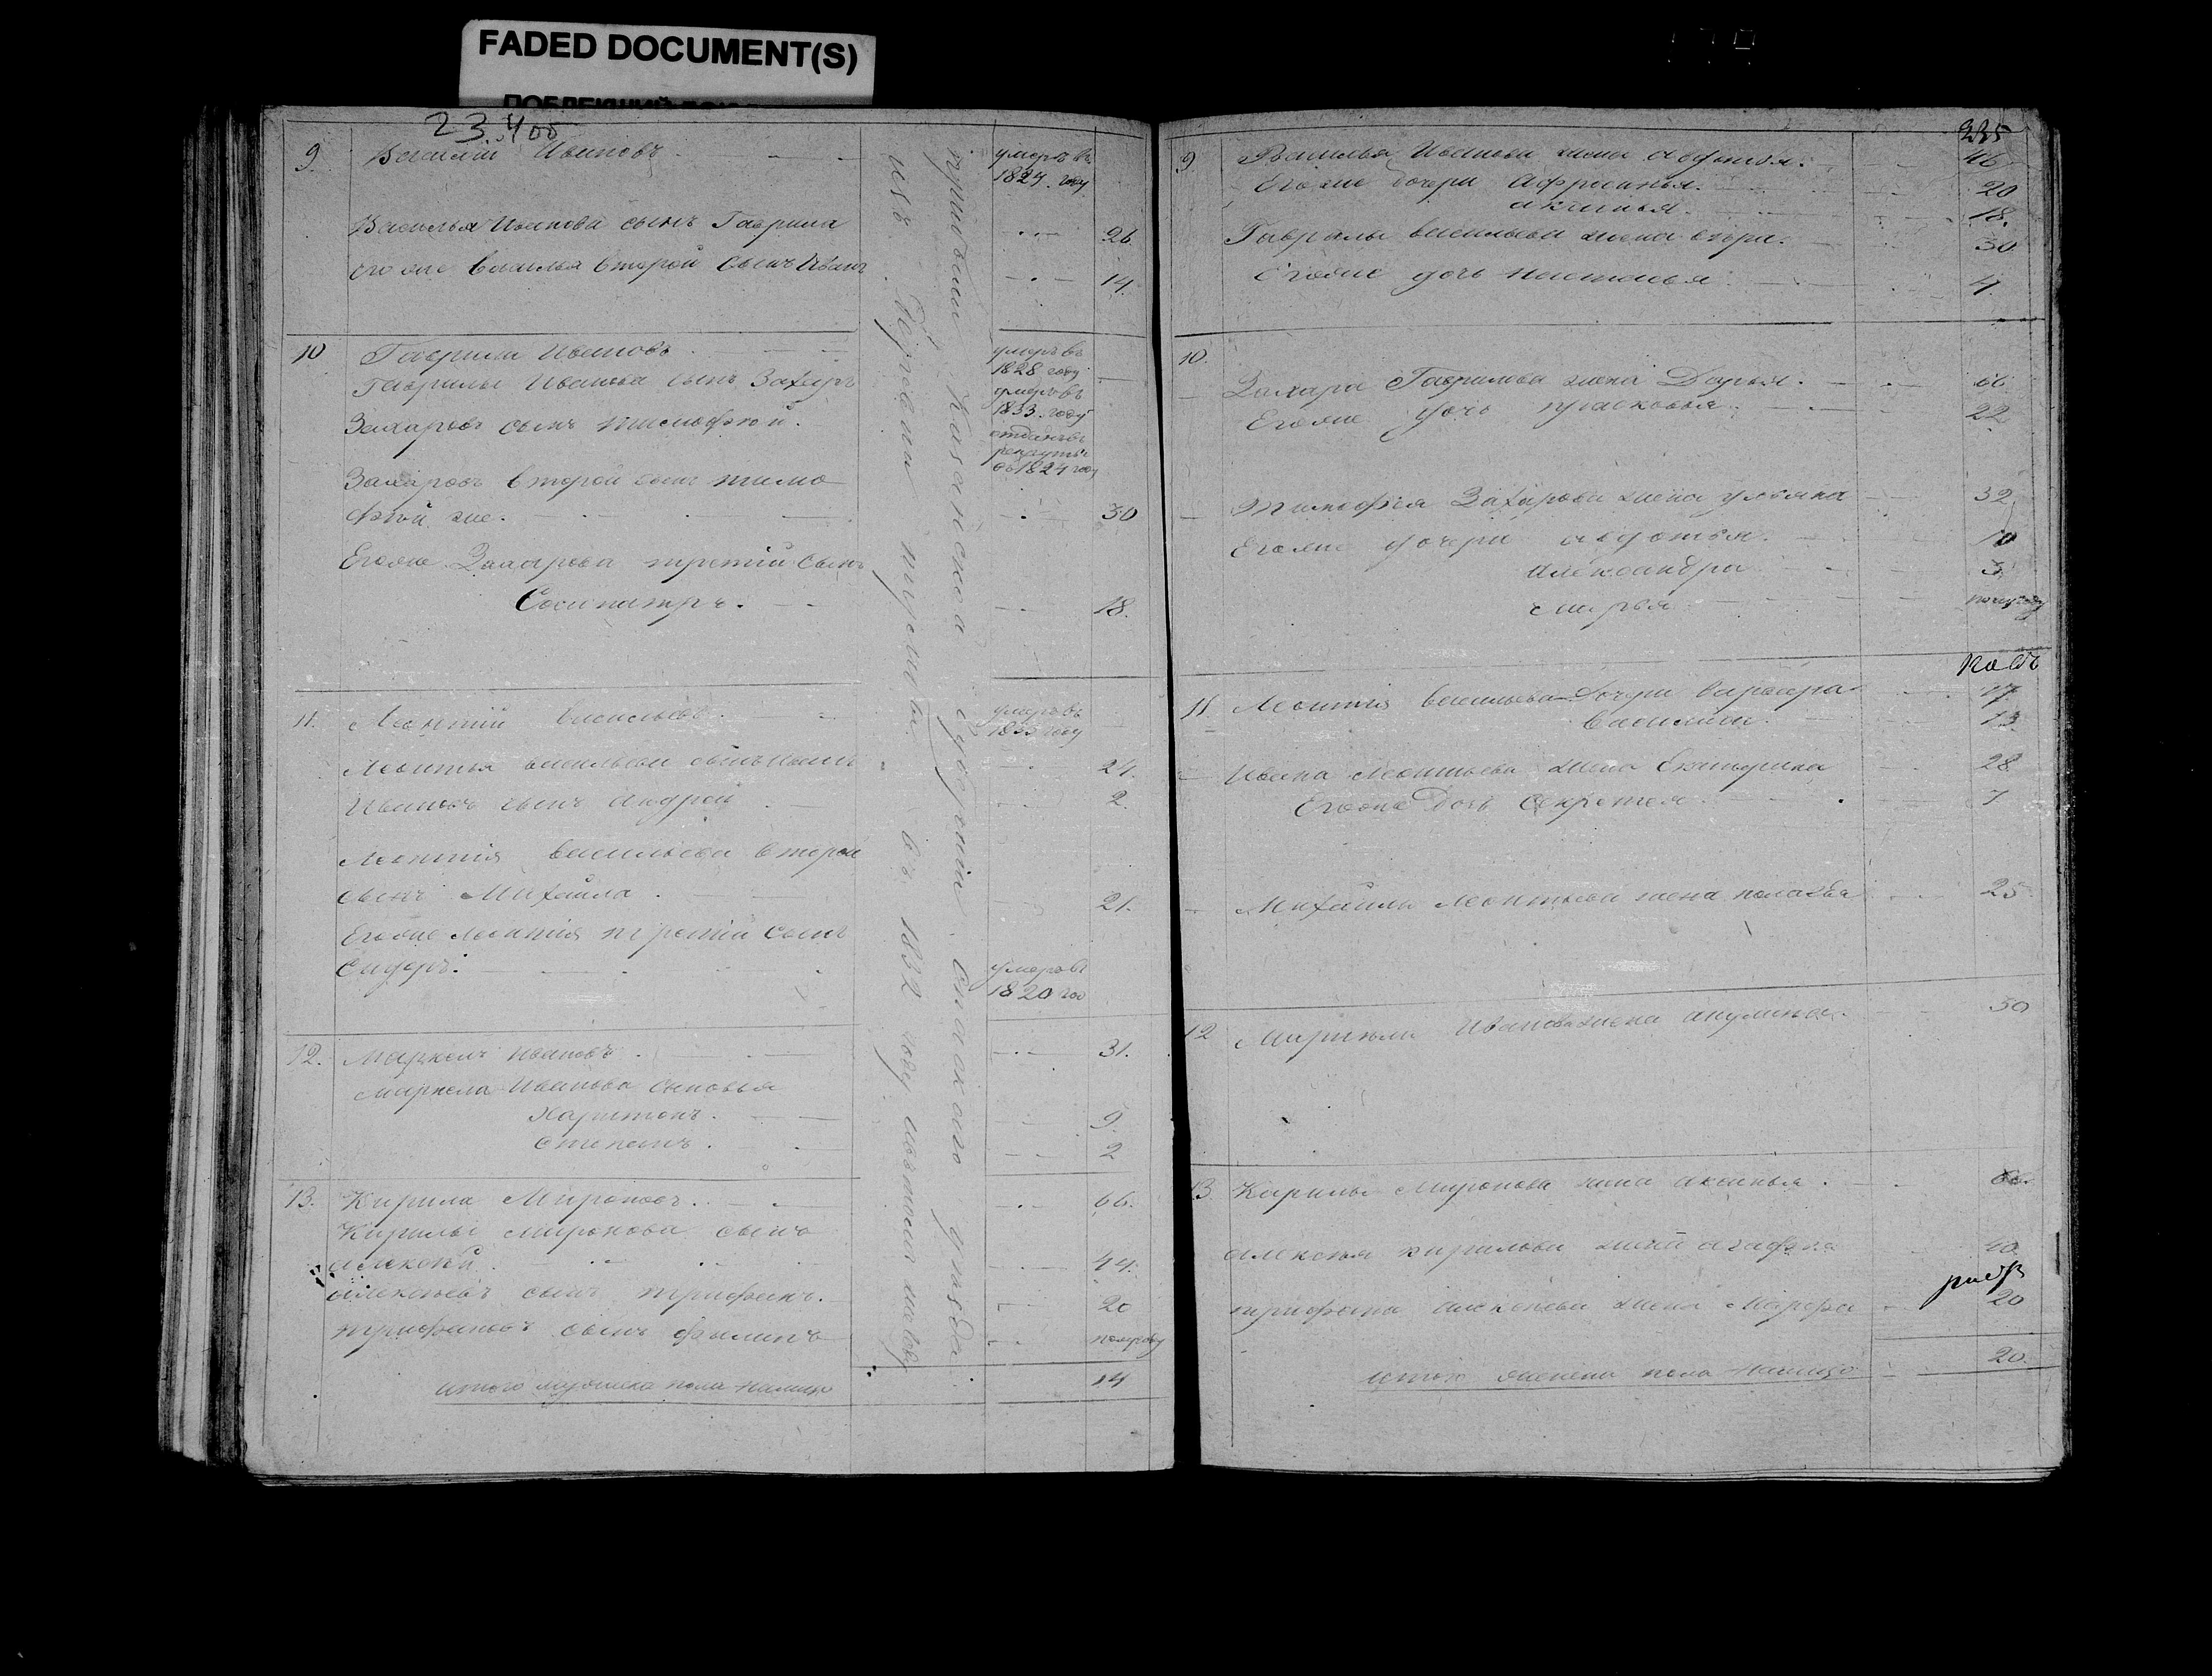 FADED DOCUMENT(S)
234 об
9. Василий Ивановъ. умеръ въ
1827. году
Василья Иванова сынъ Гаврила 26.
его же Василья второй сынъ Иванъ 14.
10 Гаврила Ивановъ. умеръ въ
1828 году
Гаврилы Иванова сынъ Захаръ умеръ въ
1833. году
Захаровъ сынъ тимофей. отданъ въ
рекруты
въ 1824 году
Захаровъ второй сынъ тимо
фей же. 30
Егоже Захарова третий сынъ
Сосипатръ. 18.
11. Леонтий Васильевъ. умеръ въ
1833 году
Леонтья васильева сынъ иванъ 24.
Ивановъ сынъ андрей 2.
Леонтия васильева второй
сынъ Михайла. 21.
Егоже Леонтия третий сынъ
Сидоръ. умеръ въ
1820 го
12. Маркелъ ивановъ. 31.
маркела Иванова сыновья
Харитонъ. 9.
степанъ. 2
13. Кирила Мироновъ. 66.
Кирилы миронова сынъ
алексей. 44.
алексеевъ сынъ трифанъ. 20
трифановъ сынъ филипъ полугоду
итого мужеска пола налицо 14
прибыли Казанской губернии Спаскаго уезда
изъ 1832 году
235
9 Василья Иванова жена авдотья. 46
Егоже дочери Афросинья. 20
акулина. 18.
Гаврилы васильева жена 30
Егоже дочь настасья 4.
10. Захара Гаврилова жена Дарья. 66
Егоже дочь прасковья. 22
тимофея Захарова жена ульяна 32
Егоже дочери авдотья. 10
Александра 3
марья полугоду
11. Леонтия васильева дочери варвара 17
василиса. 13.
Ивана Леонтьева жена Екатерина 28
Егоже Дочь 7
Михайлы Леонтьева жена палагея 25
12 Маркела Иванова жена акулина. 30
13. Кирилы миронова жена аксинья. 60.
алексея кирилова жена агафья 40
трифана алексеева жена Марфа 20
итого женска пола налицо 20.